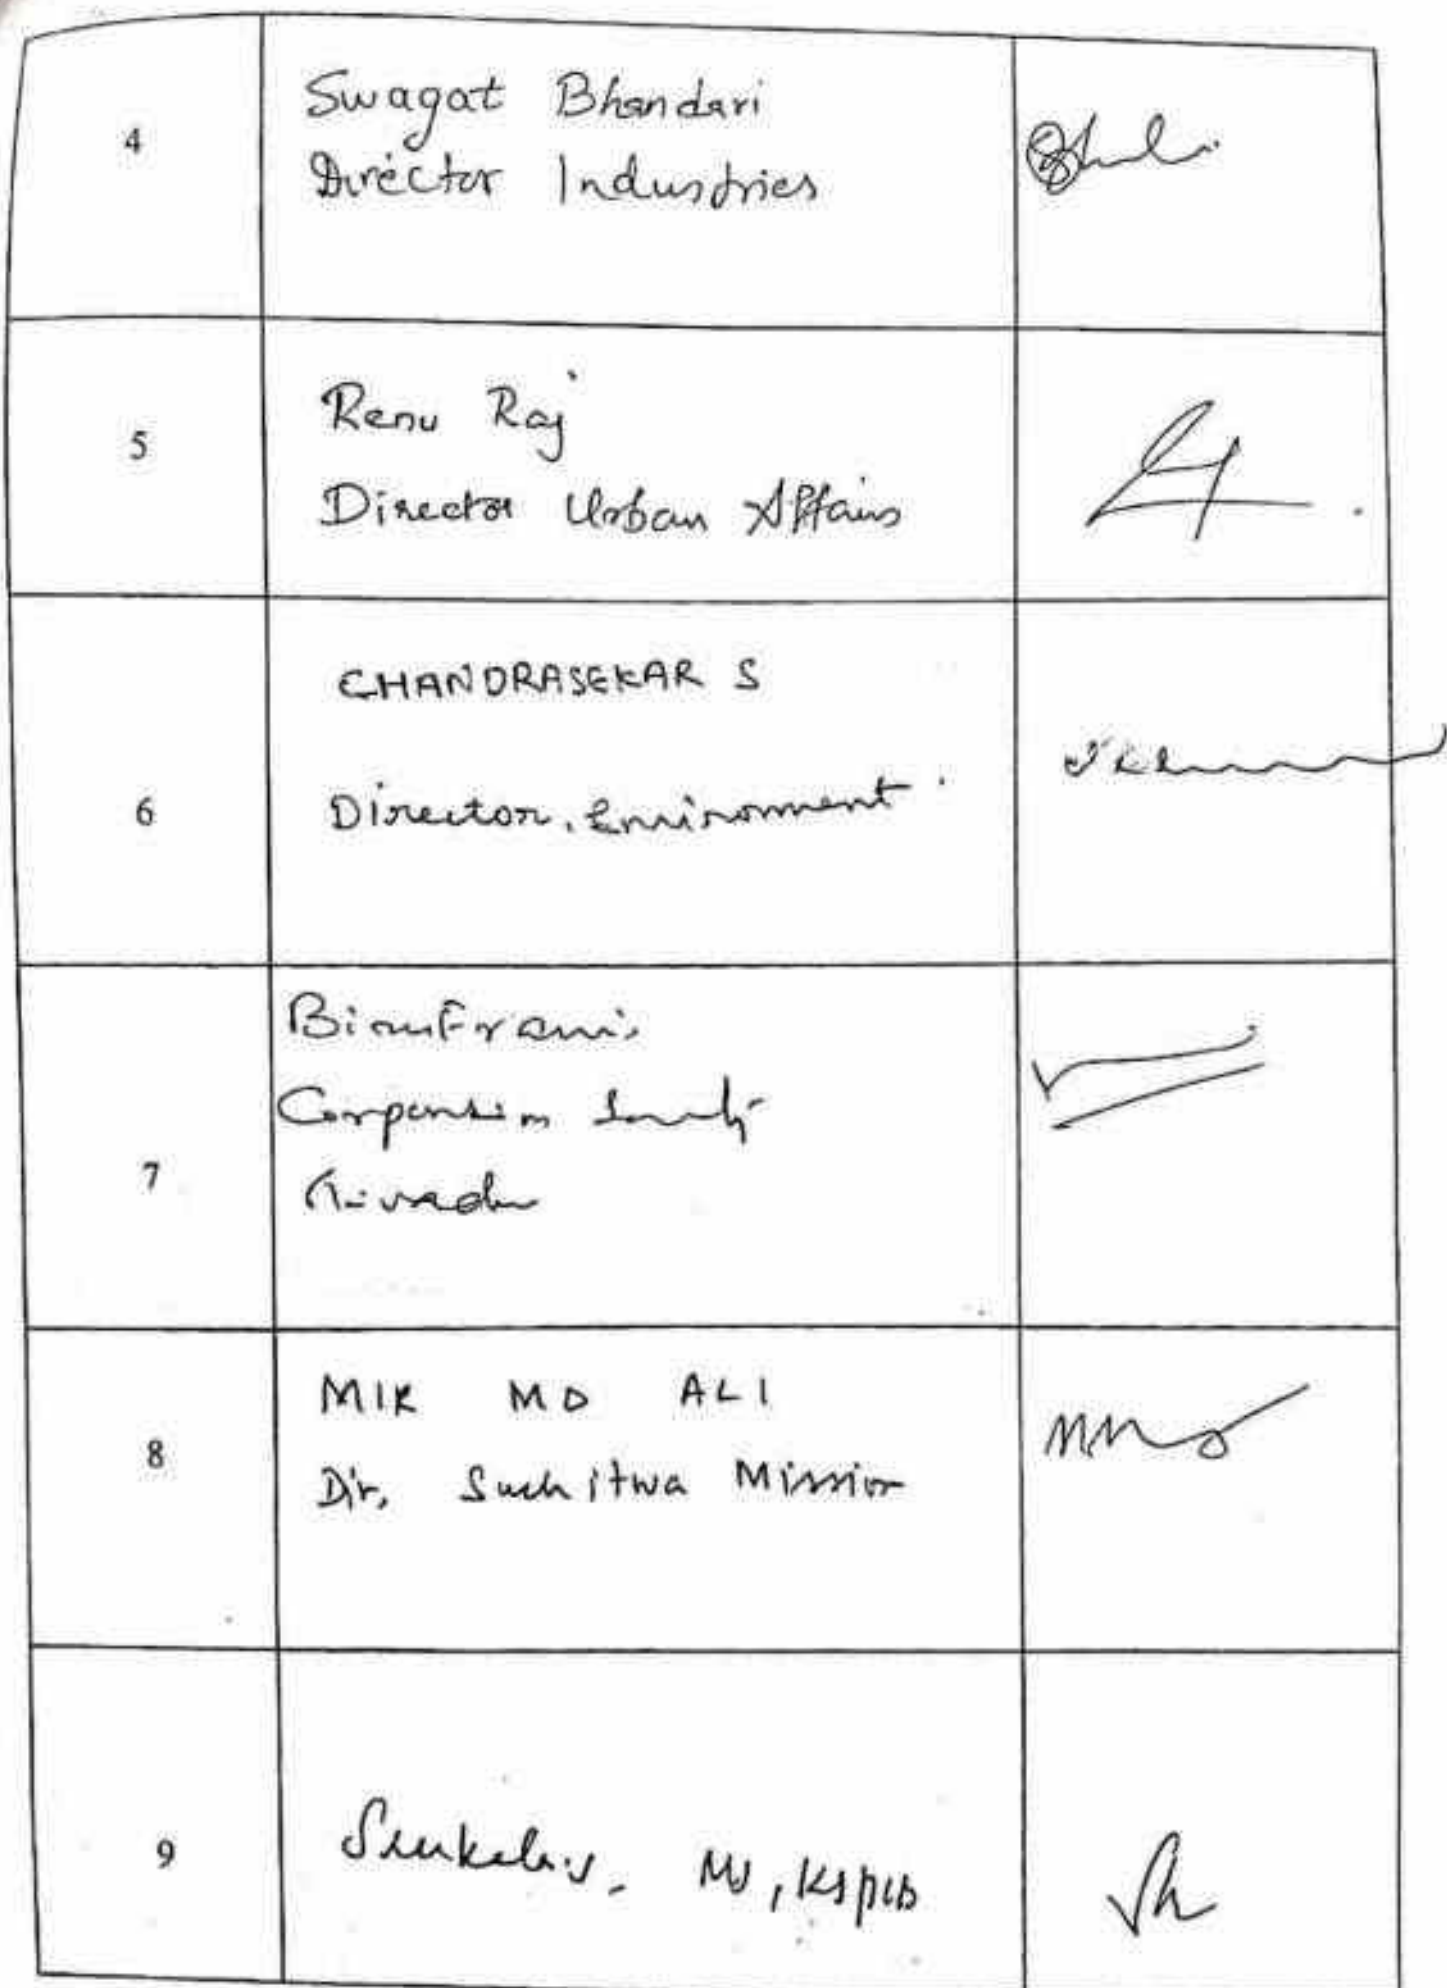 4
Swagat Bhandari
Director Industries
5
Renu Raj
Director Urban Affairs
6
CHANDRASEKAR S
Director, Environment
7
8
MIR MD ALI
Dir, Suchitwa Mission
9
Sreekala.S, MS, KSPCB